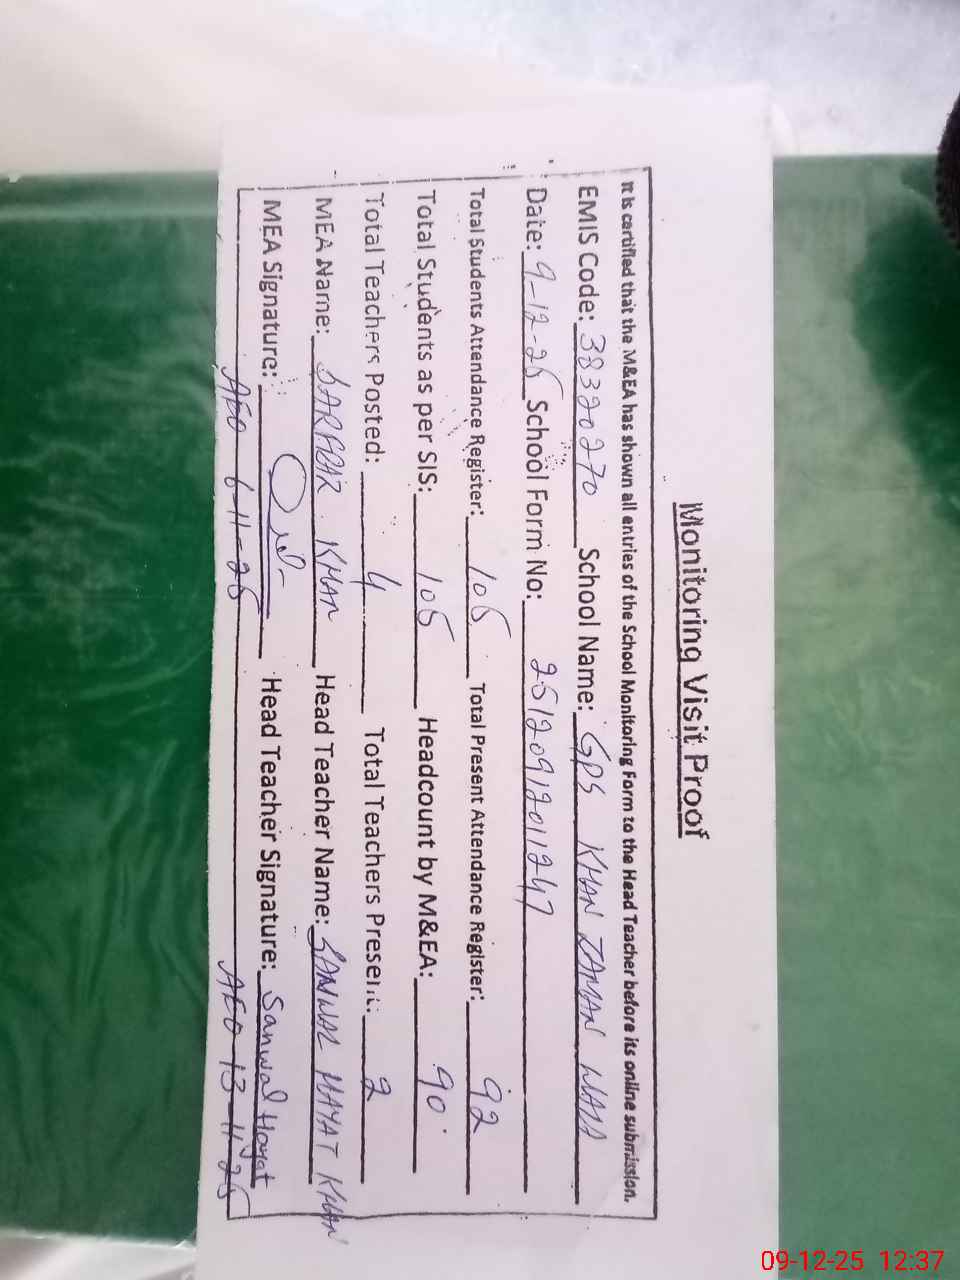 Monitoring Visit Proof
It is certified that the M&EA has shown all entries of the School Monitoring Form to the Head Teacher before its online submission.
EMIS Code: 38320270 School Name: GPS KHAN ZAMAN WALA
Date: 9-12-25 School Form No: 25120912011247
Total Students Attendance Register: 105 Total Present Attendance Register: 92
Total Students as per SIS: 105 Headcount by M&EA: 90
Total Teachers Posted: 4 Total Teachers Present: 2
MEA Name: SARFRAZ KHAN Head Teacher Name: SANWAL HAYAT KHAN
MEA Signature: Head Teacher Signature: Sanwal Hayat
AEO 6-11-25 AEO 13-11-25
09-12-25 12:37